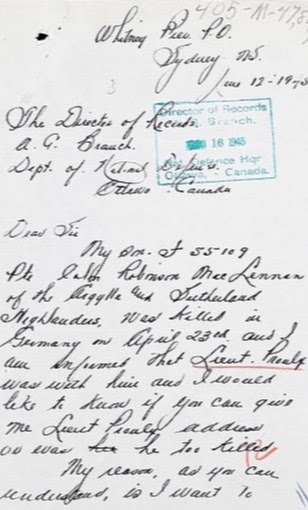 405-M-475
Whitney Pier P.O.
Sydney N.S.
June 12-1945
The Director of Records,
A. G. Branch.
Dept. of Nat-onal Defence
Ottawa - Canada
Director of Records
Branch.
16 1945
Nat. Defence Hqr
Ottawa, - Canada.
Dear Sir
My son. F 55109
Pte Robinson MacLennan
of the Argylle and Sutherland
Highlanders, was killed in
Germany on April 23rd and I
am informed that Lieut. Proulx
was with him and I would
like to know if you can give
me Lieut Proulx address
or was he too killed
My reason, as you can
understand, is I want to